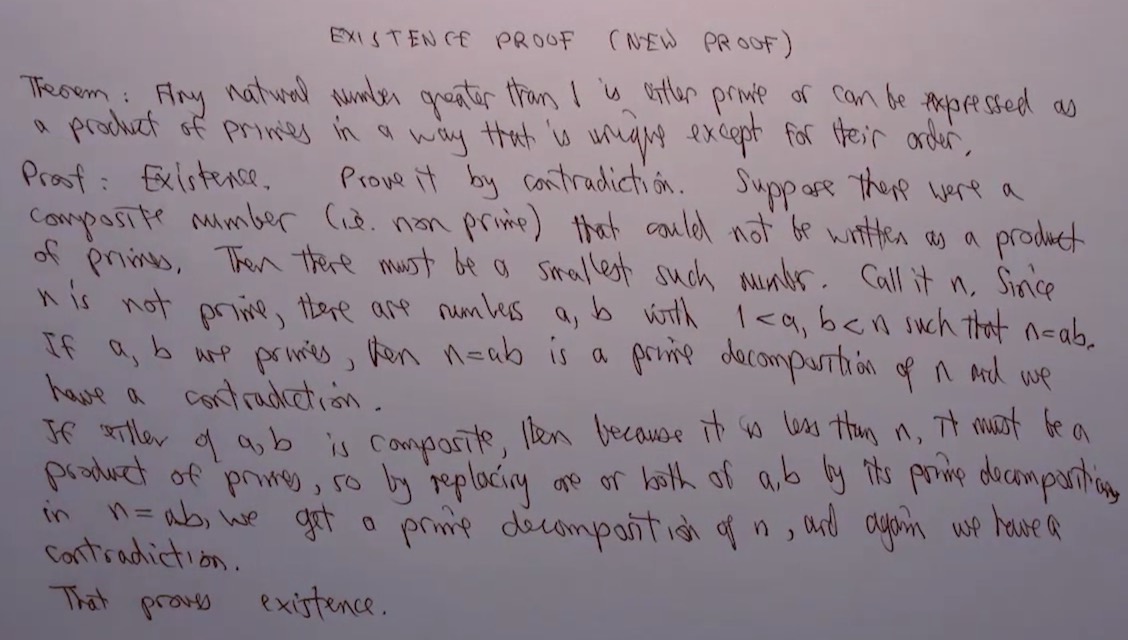 EXISTENCE PROOF (NEW PROOF)
Theorem: Any natural number greater than 1 is either prime or can be expressed as
a product of primes in a way that is unique except for their order.
Proof: Existence. Prove it by contradiction. Suppose there were a
composite number (i.e. non prime) that could not be written as a product
of primes. Then there must be a smallest such number. Call it n. Since
n is not prime, there are numbers a, b with 1<a, b<n such that n=ab.
If a, b are primes, then n=ab is a prime decomposition of n and we
have a contradiction.
If either of a, b is composite, then because it is less than n, it must be a
product of primes, so by replacing one or both of a, b by its prime decomposition
in n=ab, we get a prime decomposition of n, and again we have a
contradiction.
That proves existence.